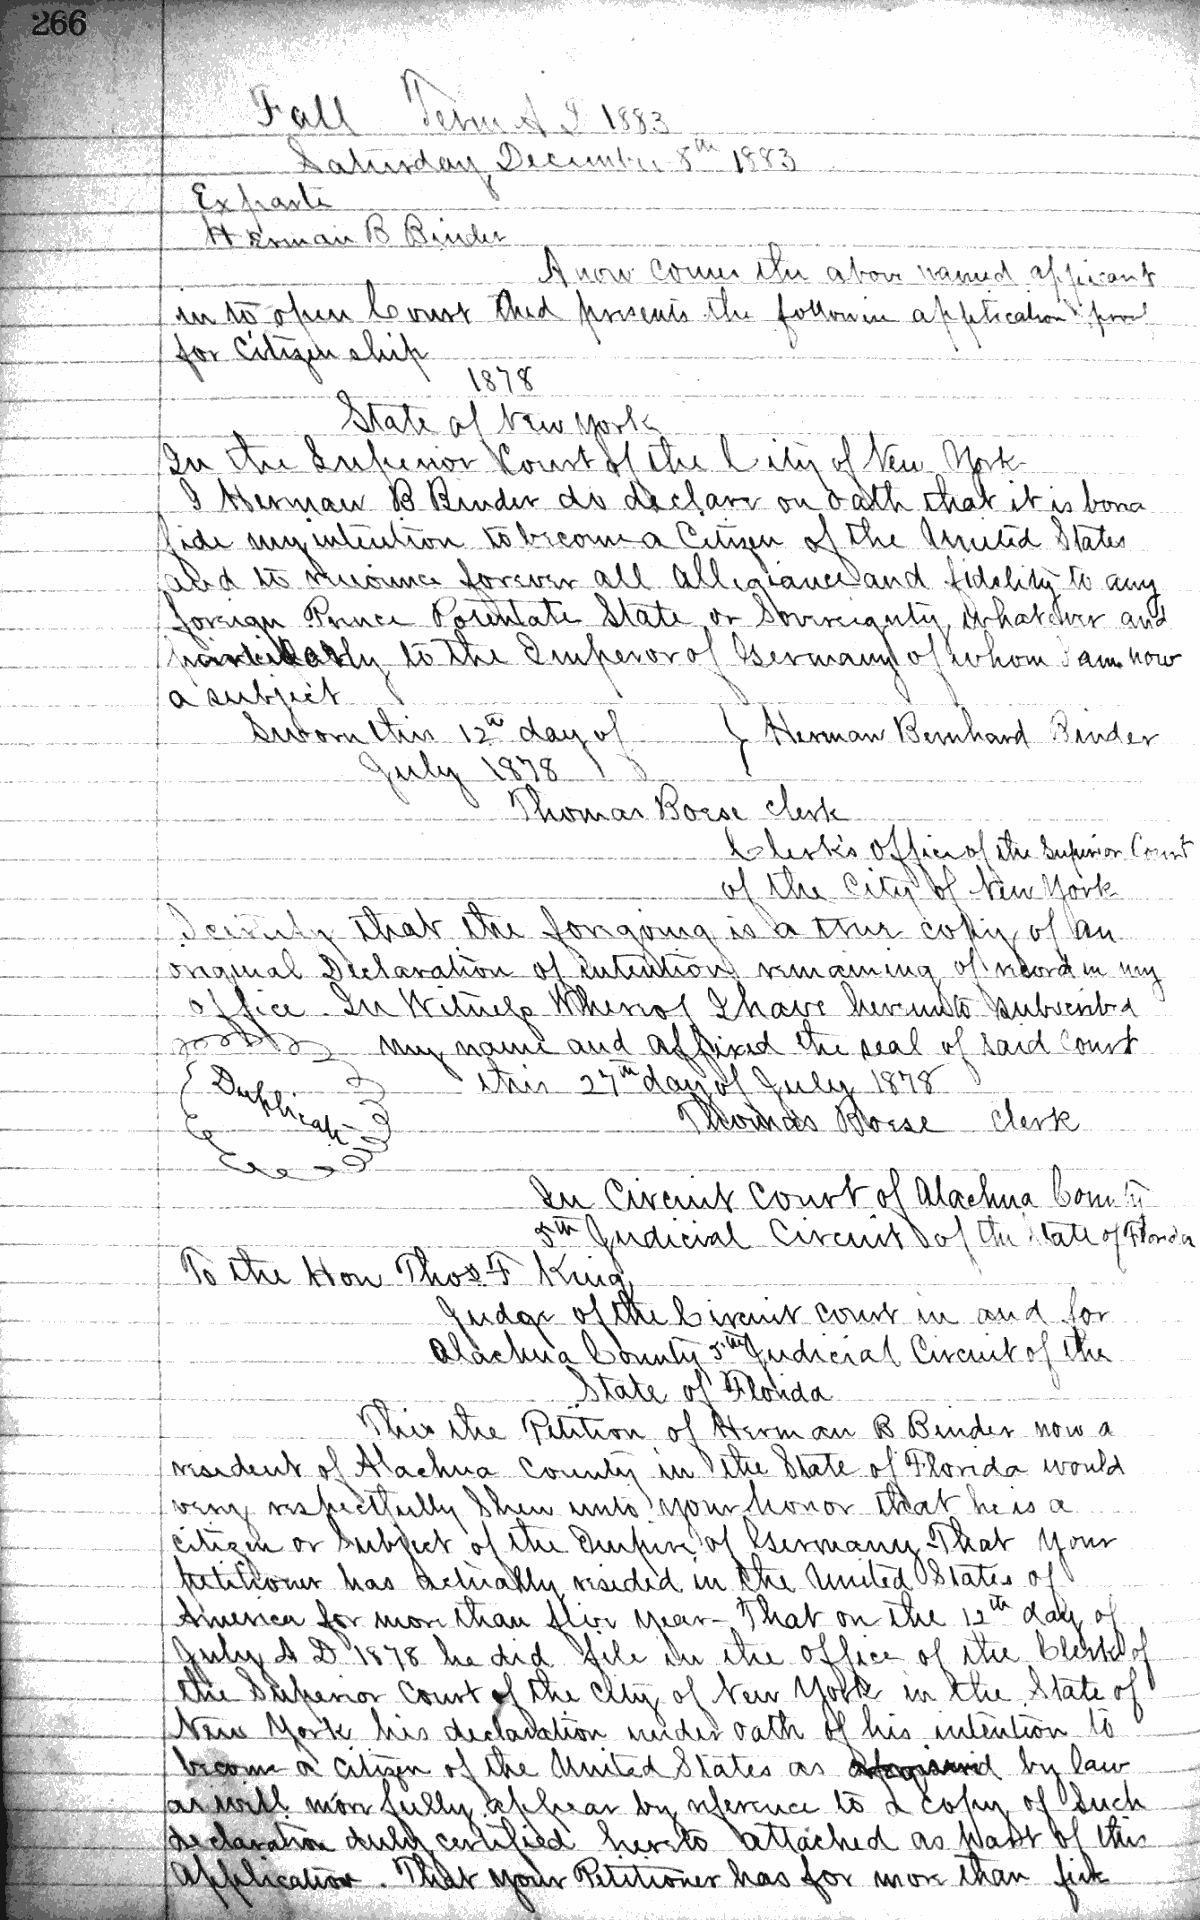 266
Fall Term A D 1883
Saturday December 8th 1883
Ex parte
Herman B Binder
A now comes the above named applicant
in to open Court And presents the followin application
for Citizen ship
1878
State of New York
In the Superior Court of the City of New York
I Herman B Binder do declare on oath that it is bona
fide my intention to become a Citizen of the United States
and to renounce forever all allegiance and fidelity to any
foreign Prince Potentate State or Sovereignty whatever and
particularly to the Emperor of Germany of whom I am now
a subject
Sworn this 12th day of } Herman Bernhard Binder
July 1878
Thomas Boese clerk
Clerk's Office of the Superior Court
of the City of New York
I certify that the forgoing is a true copy of an
original Declaration of intention remaining of record in my
office. In Witness Whereof I have hereunto subscribed
my name and affixed the seal of said Court
Duplicate
this 27th day of July 1878
Thomas Boese clerk
In Circuit Court of Alachua County
5th Judicial Circuit of the State of Florida
To the Hon Thos. F King
Judge of the Circuit court in and for
Alachua County 5th Judicial Circuit of the
State of Florida
This the Petition of Herman B Binder now a
resident of Alachua County in the State of Florida would
very respectfully Shew unto your honor that he is a
citizen or Subject of the Empire of Germany - That your
petitioner has actually resided in the United States of
America for more than five year - That on the 12th day of
July A D 1878 he did file in the Office of the Clerk of
the Superior Court of the City of New York in the State of
New York his declaration under oath of his intention to
become a citizen of the United States as by law
as will more fully appear by reference to a copy of Such
declaration duly certified hereto attached as Part of this
application. That your Petitioner has for more than